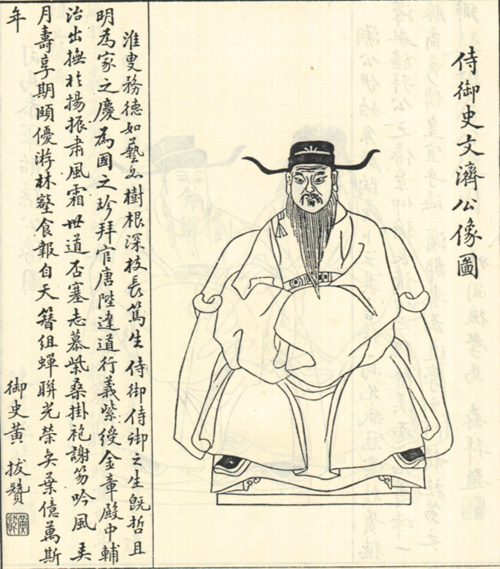 侍御史文濟公像圖
淮叟務德如藝樹根深枝長篤生侍御侍御之生既哲且
明為家之慶為國之珍拜官唐陛達道行義紫綬金章殿中輔
治出撫於揚振肅風霜世道否塞志慕柴桑掛袍謝笏吟風弄
月壽享期頤優游林壑食報自天簪組蟬聯光榮奕葉億萬斯
年
御史黃 拔贊